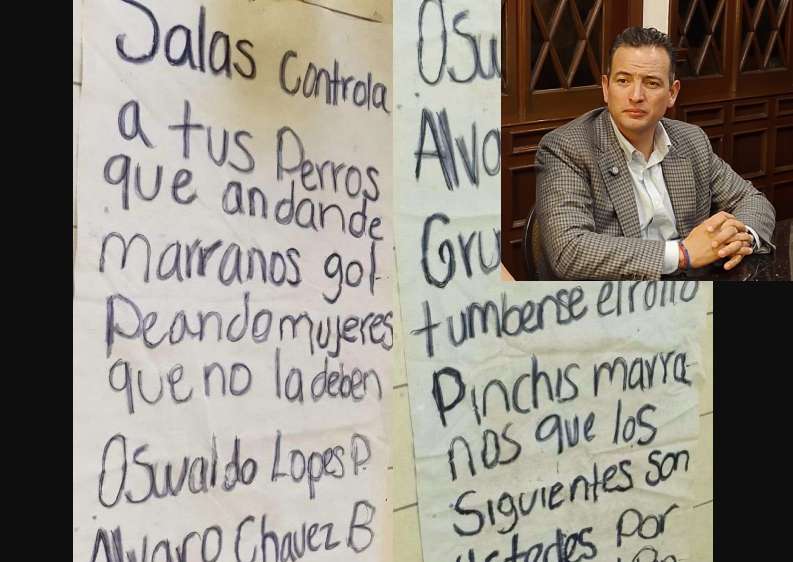 Salas controla
a tus Perros
que andande
marranos gol
Peando mujeres
que no la deben
Oswaldo Lopes P.
Alvaro Chavez B
Osw
Alva
Gru
tumbense el rollo
Pinchis marra-
nos que los
Siguientes son
ustedes por